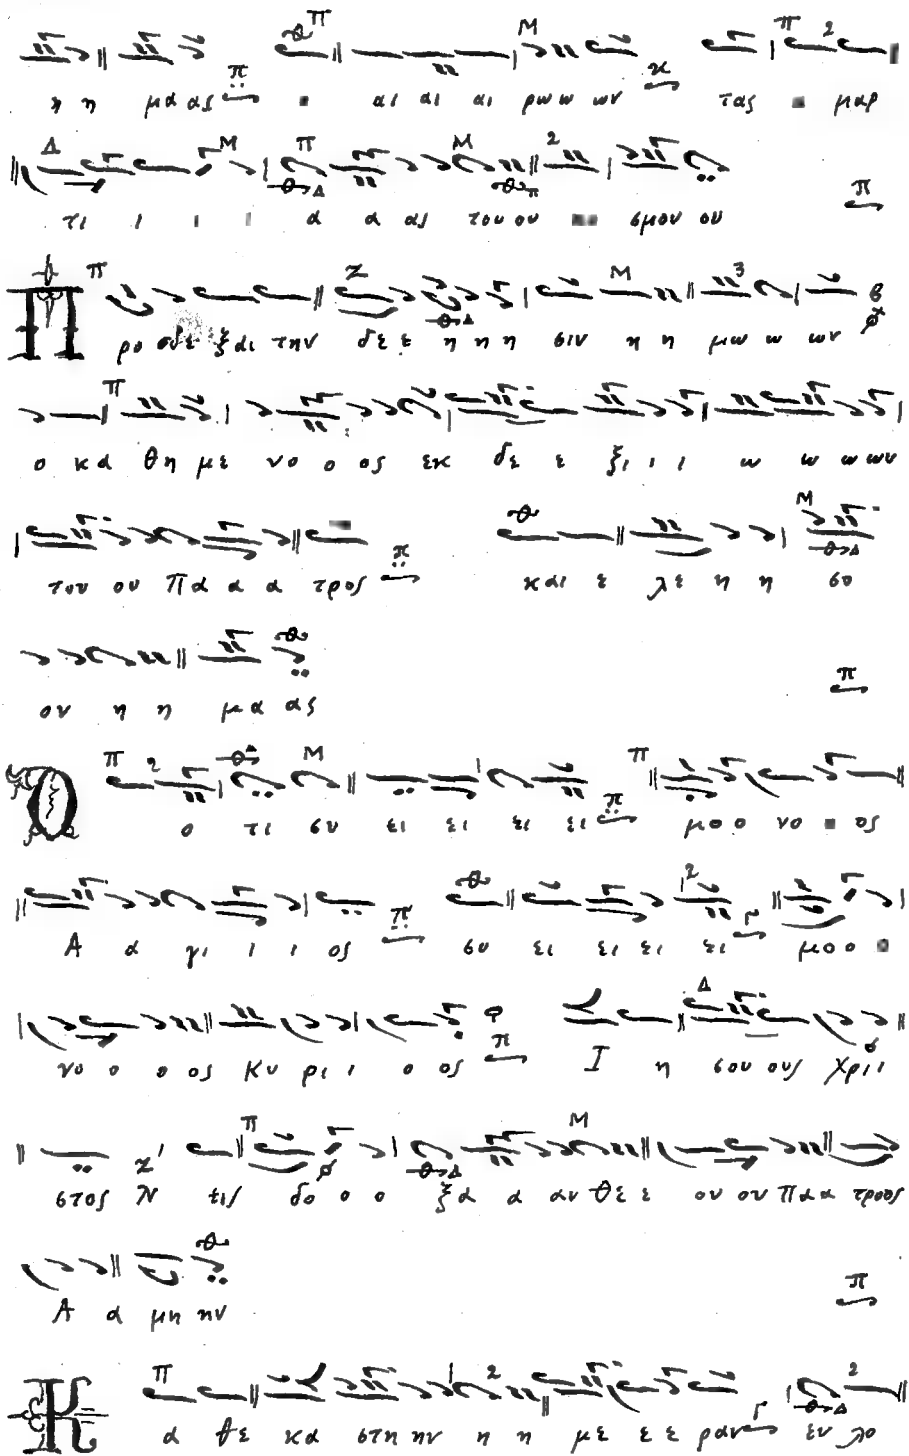 η η μα ας αι αι αι ρω ω ων τας μαρ
τι ι ι ι α α ας του ου σμου ου
Π ρο σδε ξαι την δε ε η η η σιν η η μω ω ων
ο κα θη με νο ο ος εκ δε ε ξι ι ι ω ω ω ων
του ου Πα α α τρος και ε λε η η σο
ον η η μα ας
Ο ο τι συ ει ει ει ει μο ο νο ος
Α α γι ι ι ος συ ει ει ει ει μο ο
νο ο ο ος Κυ ρι ι ο ος Ι η σου ους Χρι ι
στος εις δο ο ο ξα α αν Θε ε ου ου Πα α τροος
Α α μη ην
Κ α θε κα στη ην η η με ε ε ραν ευ λο